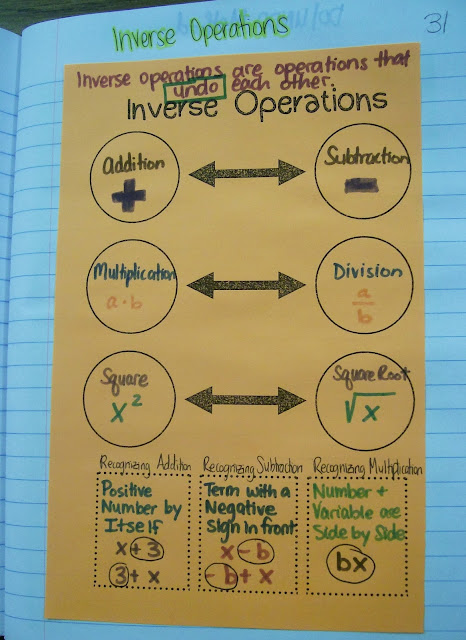 Inverse Operations
31
Inverse operations are operations that
undo each other.
Inverse Operations
Addition
+
Subtraction
-
Multiplication
a·b
Division
a
b
Square
x²
Square Root
√x
Recognizing Addition
Positive
Number by
Itself
x + 3
3 + x
Recognizing Subtraction
Term with a
Negative
Sign in front
x - b
- b + x
Recognizing Multiplication
Number +
Variable are
Side by Side
bx